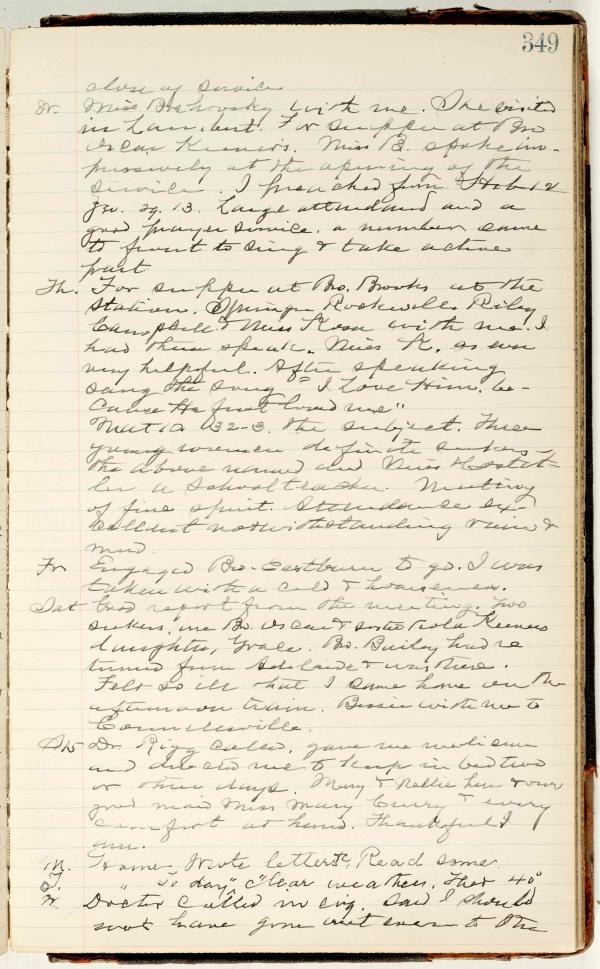 349
close of service
W. Miss Brshovsky with me. She visited
in Lam, but. For supper at Bro
Oscar Keener's. Miss B. spoke im-
pressively at the opening of the
service. I preached from Heb 12
Jer. 29. 13. Large attendance and a
good prayer service. a number came
to front to sing & take active
part
Th. For supper at Bro. Brooks at the
Station. Springer Rockwell Riley
Campbell & Miss with me. I
had them speak. Miss K. as ever
very helpful. After speaking
sang the song "I Love Him, be-
cause He first loved me"
Mat 10 32-3. the subject. Three
young women definite seekers
the above named and Miss Hostet-
ler a School teacher. Meeting
of fine spirit. Attendance ex-
cellent notwithstanding rain &
mud.
Fr Engaged Bro. Eastburn to go. I was
taken with a cold & hoarseness.
Sat Good report from the meeting. Two
seekers, one Bro. Oscar & Sister Viola Keeners
daughter, Grace. Bro. Bailey had re
turned from Adelaide & was there.
Felt so ill that I came home on the
afternoon train. Bessie with me to
Connellsville.
Sab Dr. Rigg called, gave me medicine
and directed me to keep in bed two
or three days. Mary & Nellie here & our
good maid Miss Mary Curry & every
comfort at hand. Thankful I
am.
M. Home. Wrote letters &c. Read some
T. " To day " Clear weather. Ther 40°
W. Doctor called in evg. Said I should
not have gone out even to the